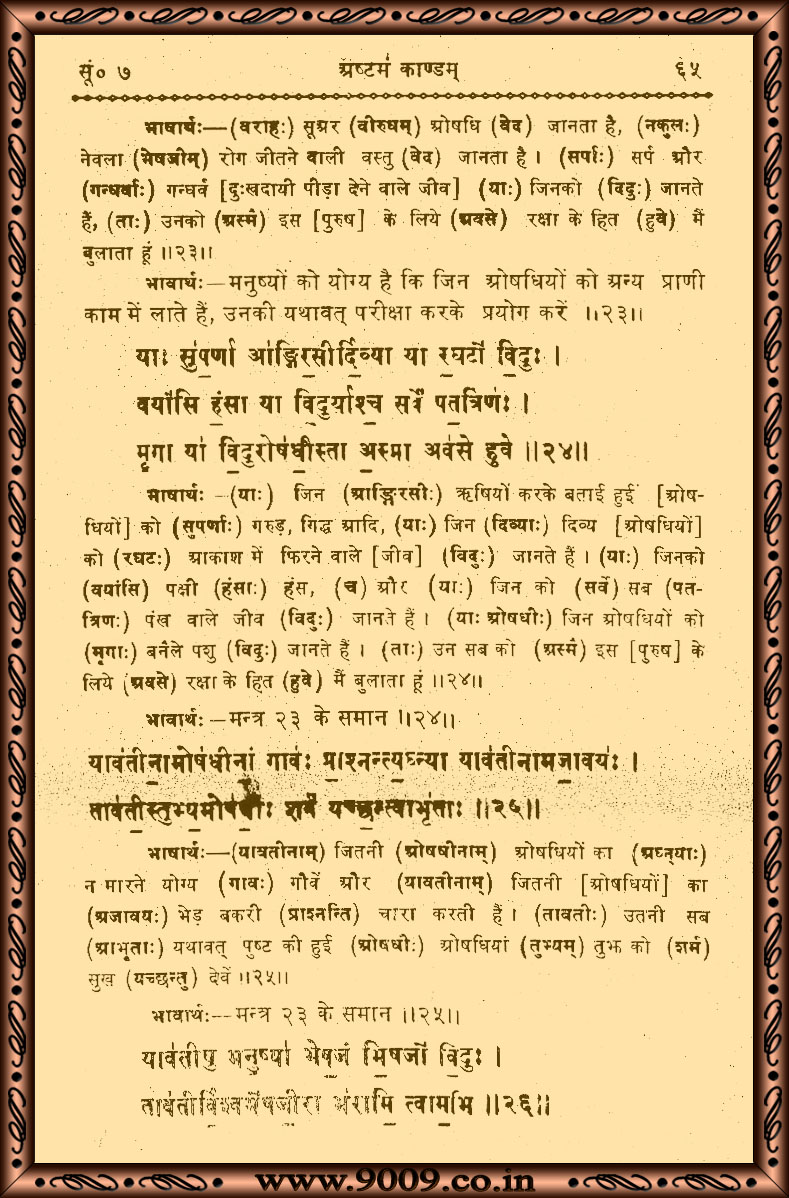 सूं० ७ अष्टमं काण्डम् ६५
भाषार्थः—(वराहः) सूअर (वीरुधम्) ओषधि (वेद) जानता है, (नकुलः)
नेवला (भेषजीम्) रोग जीतने वाली वस्तु (वेद) जानता है । (सर्पाः) सर्प और
(गन्धर्वाः) गन्धर्व [दुःखदायी पीड़ा देने वाले जीव] (याः) जिनको (विदुः) जानते
हैं, (ताः) उनको (अस्मै) इस [पुरुष] के लिये (अवसे) रक्षा के हित (हुवे) मैं
बुलाता हूं ॥२३॥
भावार्थः—मनुष्यों को योग्य है कि जिन ओषधियों को अन्य प्राणी
काम में लाते हैं, उनकी यथावत् परीक्षा करके प्रयोग करें ॥२३॥
याः सु॑प॒र्णा आ॑ङ्गिर॒सीर्दि॒व्या या र॒घटो॑ वि॒दुः ।
वयां॑सि हं॒सा या वि॒दुर्याश्च॒ सर्वे॑ पत॒त्रिणः॑ ।
मृ॒गा या वि॒दुरोष॑धी॒स्ता अ॒स्मा अव॑से हुवे ॥२४॥
भाषार्थः—(याः) जिन (आङ्गिरसीः) ऋषियों करके बताई हुई [ओष-
धियों] को (सुपर्णाः) गरुड़, गिद्ध आदि, (याः) जिन (दिव्याः) दिव्य [ओषधियों]
को (रघटः) आकाश में फिरने वाले [जीव] (विदुः) जानते हैं । (याः) जिनको
(वयांसि) पक्षी (हंसाः) हंस, (च) और (याः) जिन को (सर्वे) सब (पत-
त्रिणः) पंख वाले जीव (विदुः) जानते हैं । (याः ओषधीः) जिन ओषधियों को
(मृगाः) बनैले पशु (विदुः) जानते हैं । (ताः) उन सब को (अस्मै) इस [पुरुष] के
लिये (अवसे) रक्षा के हित (हुवे) मैं बुलाता हूं ॥२४॥
भावार्थः—मन्त्र २३ के समान ॥२४॥
याव॑तीना॒मोष॑धीनां॒ गावः॑ प्रा॒श्नन्त्य॒घ्न्या याव॑तीनामजा॒वयः॑ ।
ताव॑ती॒स्तुभ्य॒मोष॑धीः॒ शर्म॑ यच्छ॒न्त्वाभृ॑ताः ॥२५॥
भाषार्थः—(यावतीनाम्) जितनी (ओषधीनाम्) ओषधियों का (अघ्न्याः)
न मारने योग्य (गावः) गौवें और (यावतीनाम्) जितनी [ओषधियों] का
(अजावयः) भेड़ बकरी (प्राश्नन्ति) चारा करती हैं । (तावतीः) उतनी सब
(आभृताः) यथावत् पुष्ट की हुई (ओषधीः) ओषधियां (तुभ्यम्) तुझ को (शर्म)
सुख (यच्छन्तु) देवें ॥२५॥
भावार्थः—मन्त्र २३ के समान ॥२५॥
याव॑तीषु मनु॒ष्या॑ भेष॒जं भि॒षजो॑ वि॒दुः ।
ताव॑तीर्वि॒श्वभे॑षजी॒रा भ॑रामि॒ त्वाम॒भि ॥२६॥
www.9009.co.in